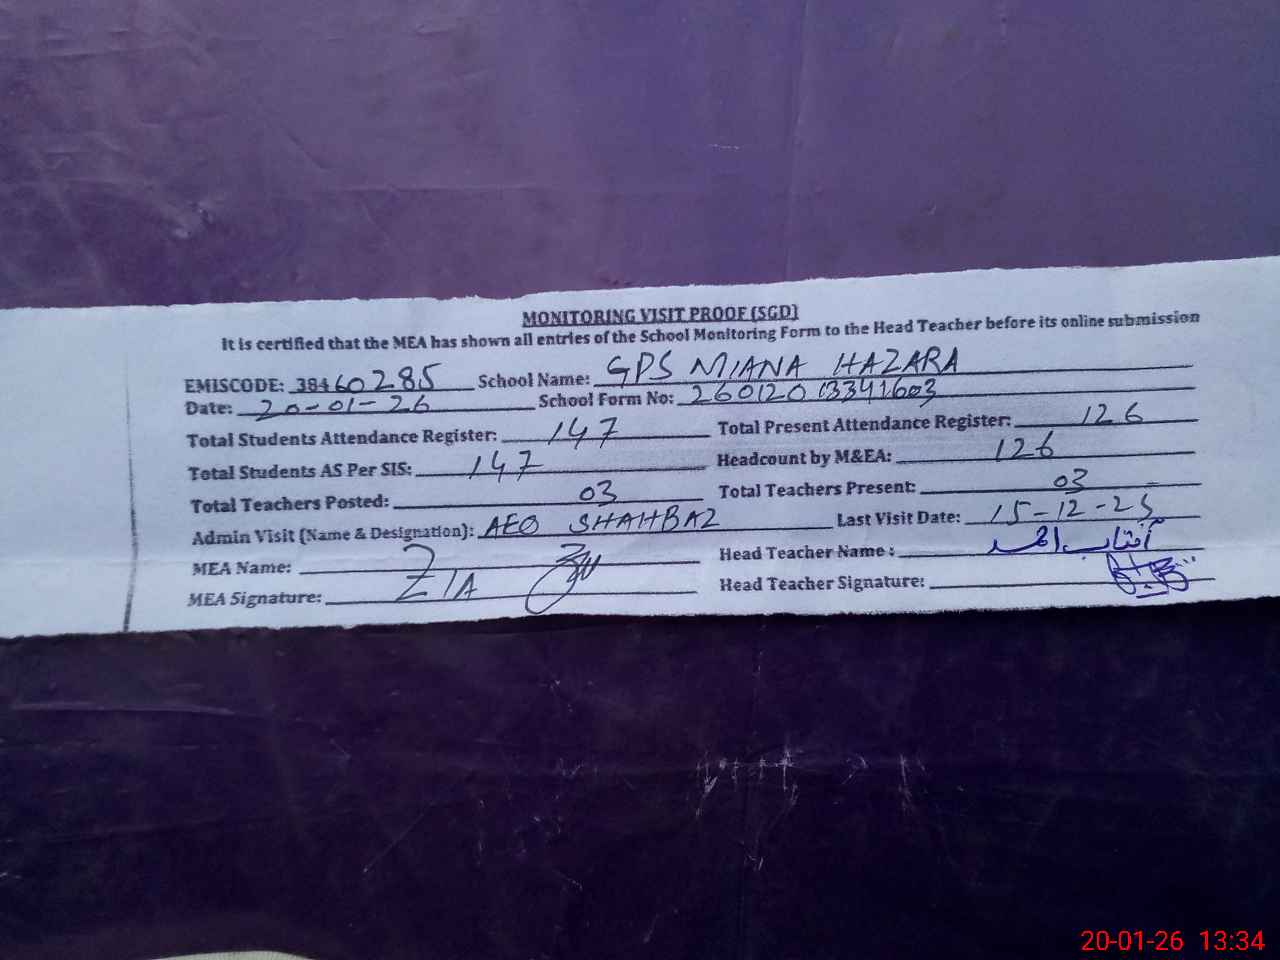 MONITORING VISIT PROOF (SGD)
It is certified that the MEA has shown all entries of the School Monitoring Form to the Head Teacher before its online submission
EMISCODE: 38460285 School Name: GPS MIANA HAZARA
Date: 20-01-26 School Form No: 26012013341603
Total Students Attendance Register: 147 Total Present Attendance Register: 126
Total Students AS Per SIS: 147 Headcount by M&EA: 126
Total Teachers Posted: 03 Total Teachers Present: 03
Admin Visit (Name & Designation): AEO SHAHBAZ Last Visit Date: 15-12-25
MEA Name: ZIA Head Teacher Name: آفتاب احمد
MEA Signature: Head Teacher Signature:
20-01-26 13:34